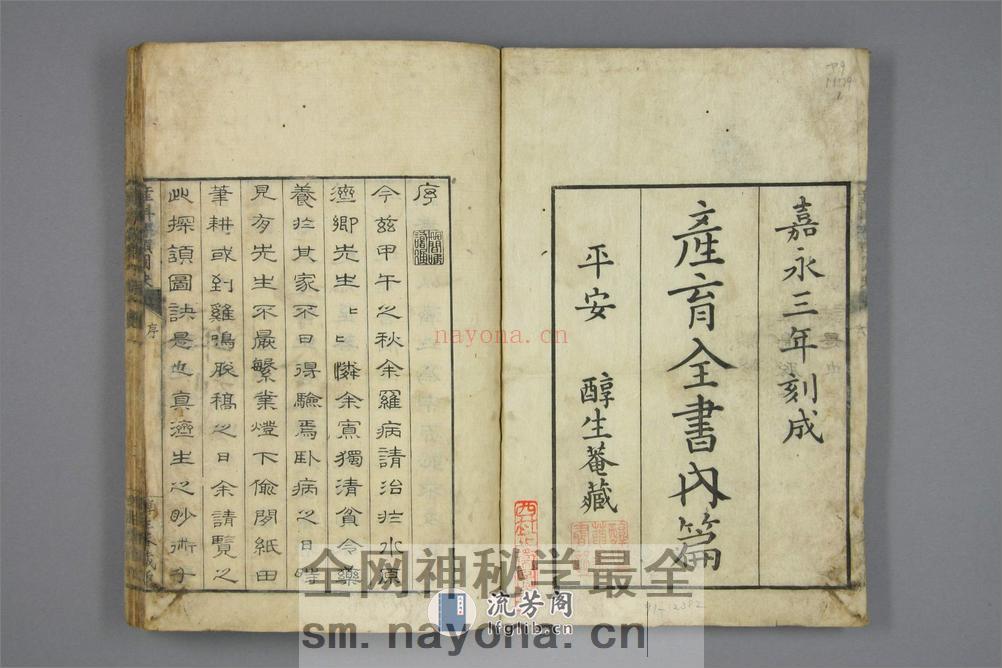 嘉永三年刻成
產育全書內篇
平安 醇生菴藏
序
今茲甲午之秋余羅病請治於水原
濟卿先生〻〻憐余寡獨清貧令藥
養於其家不日得驗焉臥病之日時
見有先生不厭繁業燈下偷閑紙田
筆耕或到雞鳴脫稿之日余請覽之
此探頷圖訣是也真濟生之妙術予
序
nayona.cn
全网神秘学最全
流芳阁
lfglib.cn
sm.nayona.cn